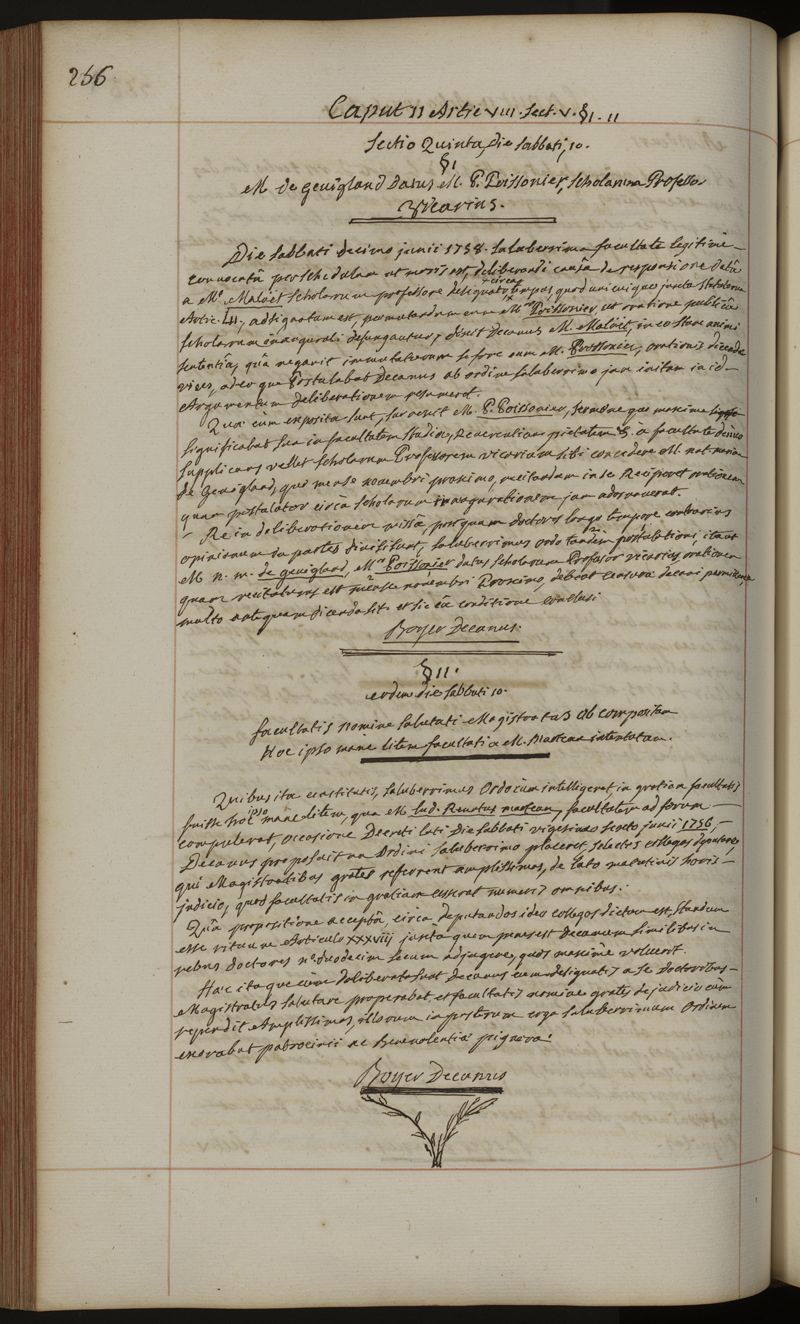 256
Caput 11 Artic VIII. Sect. V. §1. 11
Sectio Quinta, die sabbati, 10.
§1
M. de Gevigland datus M. P. Poissonier, scholarum Professor
Vicarius.
Die sabbati decimo junii 1758. saluberrima facultate legitime
convocatâ per schedulam ut moris est, deliberandi causâ de responsione datâ
a Mo. Maloët scholarum professore designato circa tempus quod unicuique juxta statutorum
Artic. LII, adsignatum est, permutandum cum Mro Poissonier, ut oratione publicâ
scholarum inaugurali defungantur, dixit Decanus M. Maloët, in eo stare animi
sententiâ, quâ negavit immutaturum se fore cum M. Poissonier, orationis dicendæ
vices, adeoque Postulabat Decanus ab ordine saluberrimo jam initam in id
Argumentum deliberationem resumeret.
Quæ cum exposita sunt, M. P. Poissonier, sermone quo maxime
significabat sua in facultatem studia, Reverentiam pietatem &. a facultate denuo
supplicans vellet scholarum Professorem vicarium sibi concedere M. nat. maria
de Gevigland, qui mense novembri proximo, recitandam in se Reciperet orationem
quam postulator circa scholarum inaugurationem jam adornaverat.
Re in deliberationem missâ, postquam doctores longo tempore contrarias
opinionum in partes divisi sunt, saluberrimus ordo tandem postulationi, itaut
M. n. m. de gevigland, Mro Poissonier datus scholarum Professor vicarius orationem
quam recitaturus est mense novembri Proximo, debeat censuræ decani permittere,
multo antequam dicenda sit. et sic eâ conditione conclusi
Boyer Decanus.
§11.
eodem die sabbati 10.
facultatis nomine salutati Magistratus ob compositam
Hoc ipso mane litem facultati a M. Marteau intentatam.
Quibus ita constitutis, saluberrimus Ordo cum intelligeret, in gratiam facultatis
fuisse hoc ipso mane litem, qua M. Lud. Renatus marteau, facultatem ad forum
compulerat, occasione Decreti lati die sabbati vigesima sexto junii 1756,
Decanus proposuit an Ordini saluberrimo placeret, selectos collegas deputare,
qui Magistratibus grates referrent amplissimas, de lato matutinis horis
judicio, quod facultatis in gratiam cesserat numeris omnibus.
Quâ propositione acceptâ, circa deputandos ideo collegas dictum est, standum
esse ritu Articulo XXXVIIJ juxta quem penes est decanum similibus in
rebus doctores no. duodecim secum adjungere, quos maxime voluerit.
Hæc itaque cùm deliberata sunt, decanus cum designatis a se doctoribus
Magistratus salutare properabat et facultatis nomine grates de judicio cùm
rependit Amplissimas, illorum in posterum erga saluberrimum Ordinem
exorabat patrocinii ac Benevolentiæ pignora.
Boyer Decanus